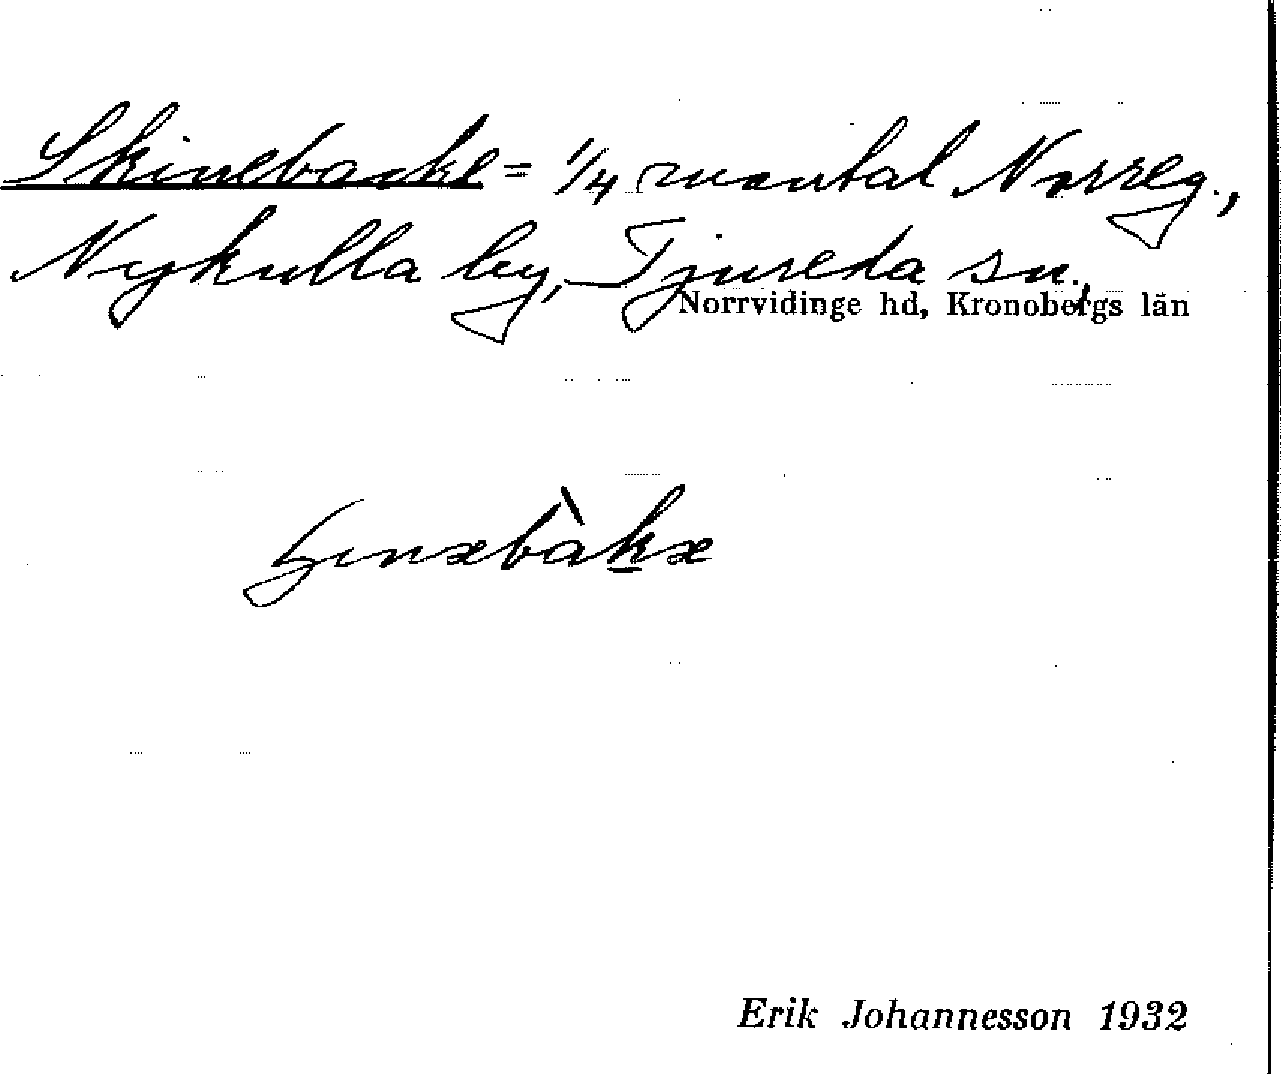 Skinebacke = 1/4 mantal Norreg.,
Nykulla by, Tjureda sn.,
Norrvidinge hd, Kronobergs län
Erik Johannesson 1932